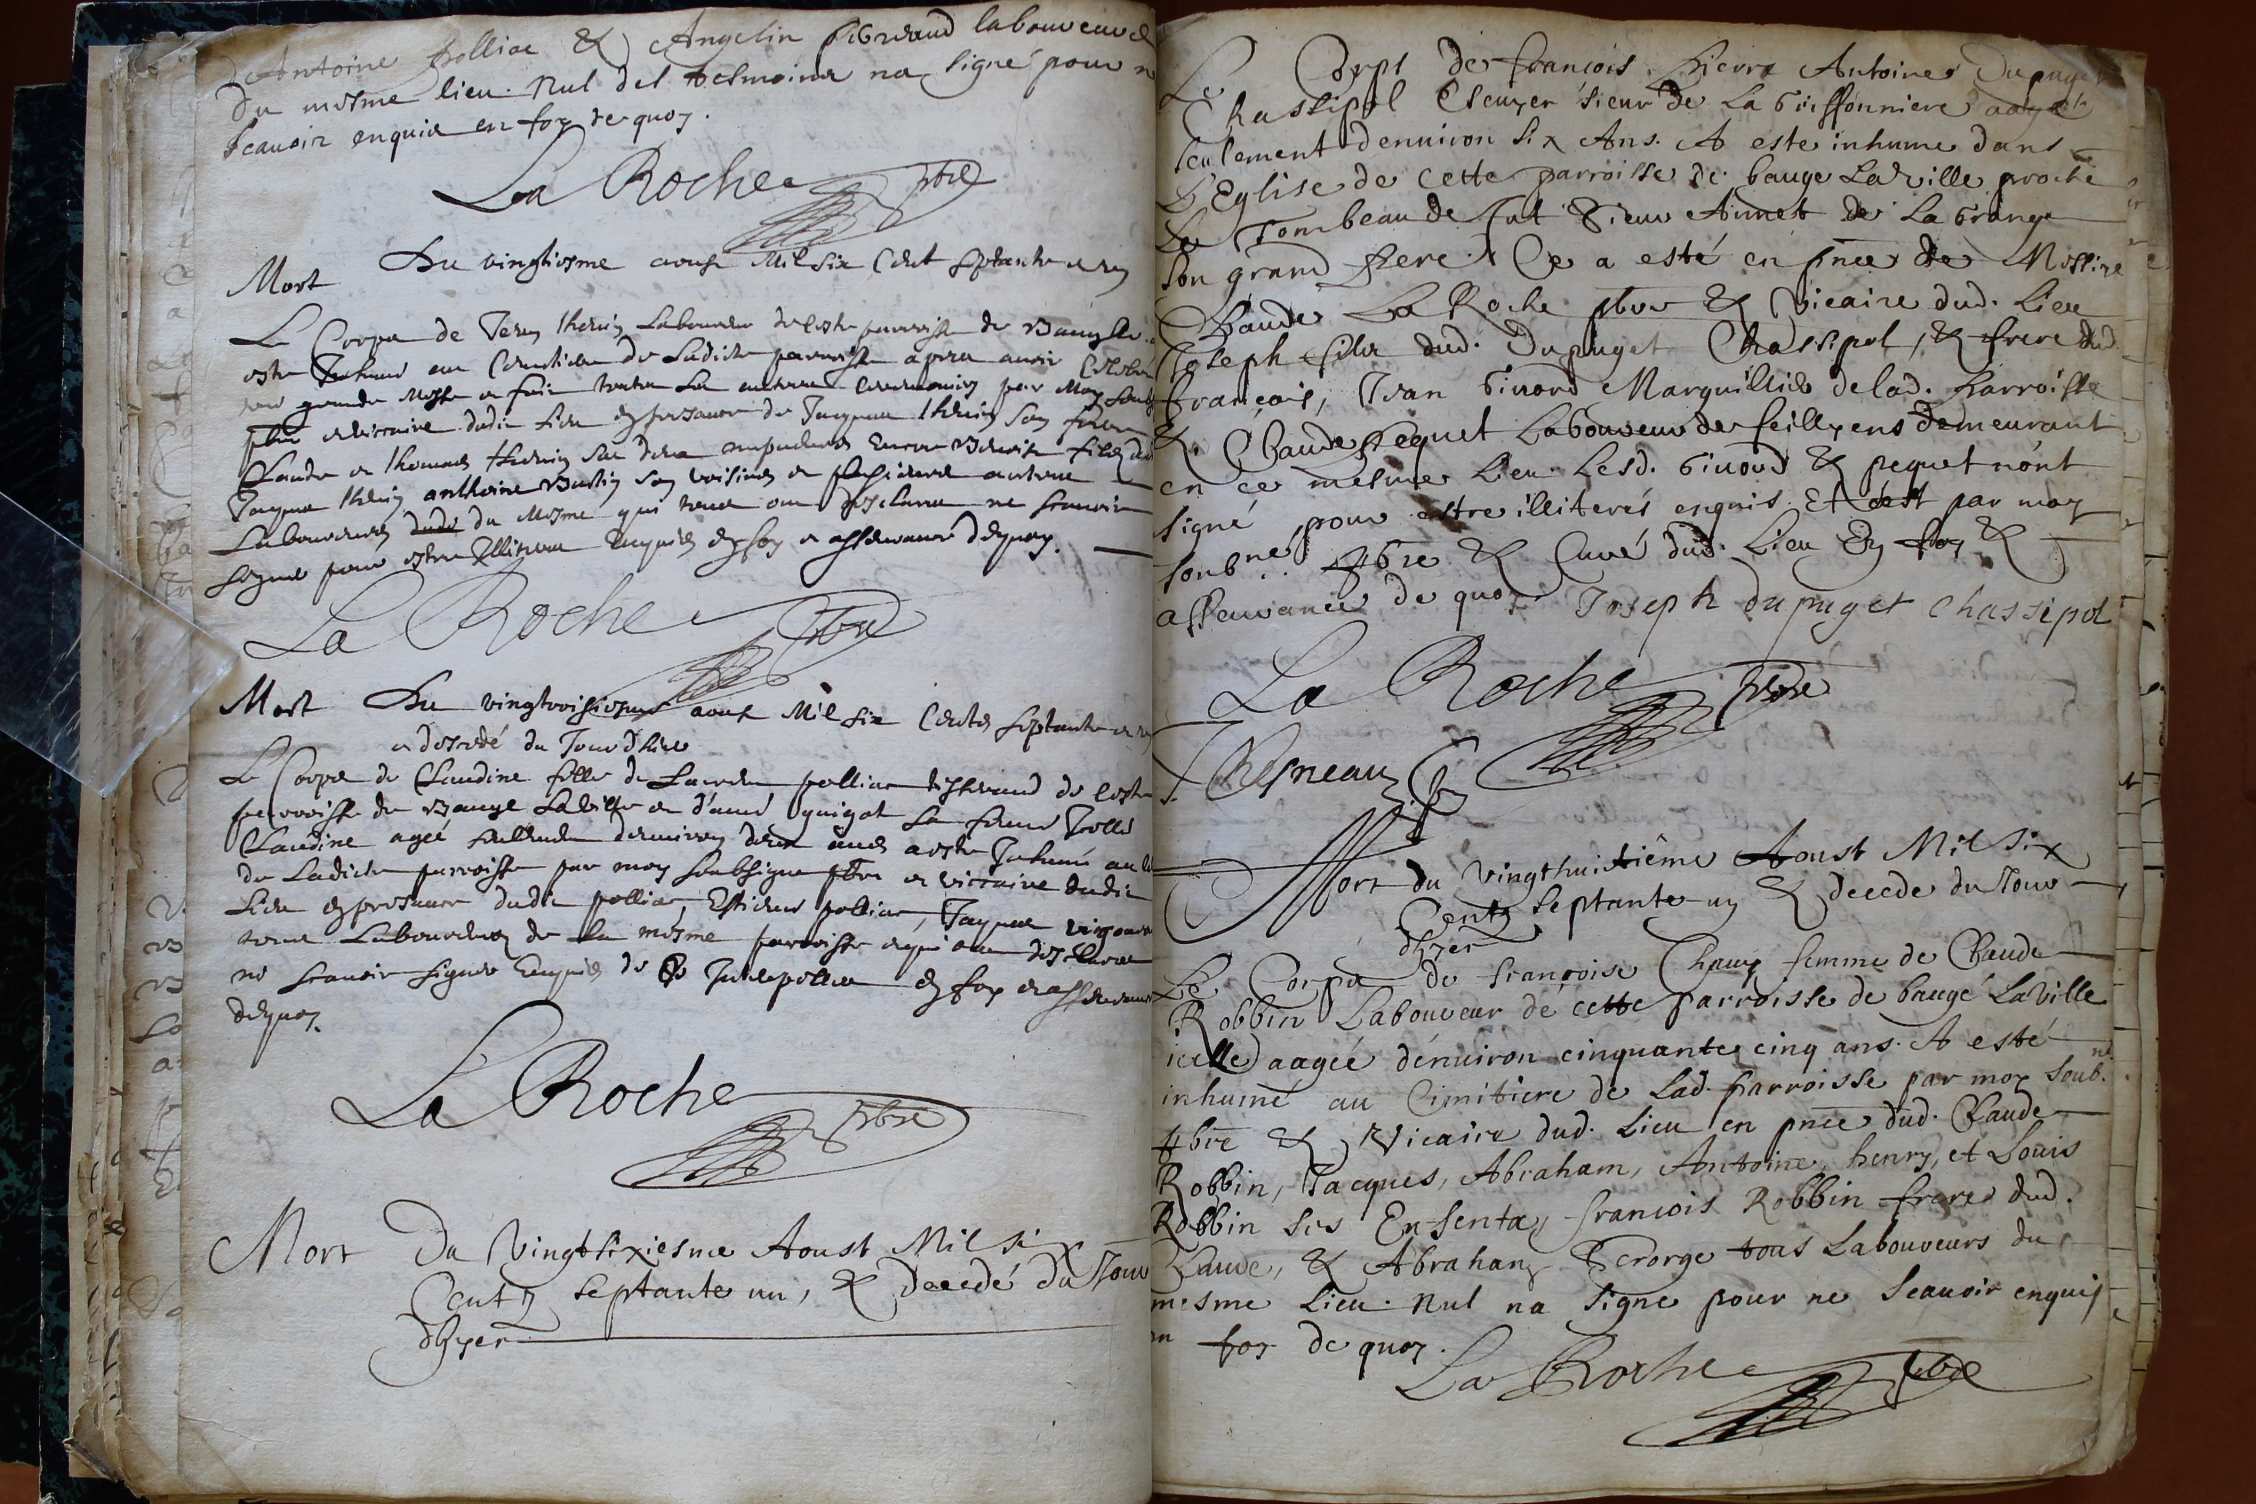 d'Antoine polliac & Angelin labouveurs
du mesme lieu. Nul des tesmoins na signé pour n
scavoir enquis en foy de quoy.
La Roche pbre
Mort Du vingtiesme aoust Mil six Cent septante et un
Le Corps de Jean thevin Laboureur de ceste parroisse de Baugé la
estre Inhumé au Cemetiere de Ladicte parroisse apres avoir Celebré
une grande Messe et fait toutes Les autres Ceremonies par Moy soubs
pbre et viccaire dudit Lieu en presence de Jacques thevin son frere
Claude et thomas thevin encore Benoist fils du
Jacques thevin anthoine son voisin et plusieurs autres
Laboureurs dudi du Mesme qui tous ont desclaré ne scavoir
signer pour estre Illiteres Enquis en foy et asseurance dequoy.
La Roche pbre
Mort Du vingtroisiesme aoust Mil six Cents septante et un
et decedé du Jour d'hier
Le Corps de Claudine fille de polliac tisserand de ceste
parroisse de Baugé La ville et d'anne guigot Sa femme Icelle
Claudine agée seulement denviron deux ans a esté Inhumé au
de Ladicte parroisse par moy soubsigné pbre et viccaire dudit
Lieu en presence dudit polliac, Estienne polliac, Jacques
tous Laboureurs de La mesme parroisse et qui ont desclaré
ne scavoir signer Enquis de Ce Interpelles en foy et asseurance
dequoy.
La Roche pbre
Mort Du Vingt sixiesme Aoust Mil six
Centz septante un, & decedé du Jour
d'hyer
Le Corps de françois Pierre Antoine Dupuget
Chassipol Escuyer sieur de La Griffonniere aagé
seulement d'enuiron six Ans. A esté inhumé dans
L'Eglise de cette parroisse de baugé La ville proche
Le Tombeau de fut Sieur Aimet de La Grange
son grand Pere. Ce a esté en pnce de Messire
Claude La Roche pbre & Vicaire dud. Lieu
Joseph fils dud. Dupuget Chassipol, & frere dud.
françois, Jean Givord Marguillier de lad. Parroisse
& Claude Pequet Labouveur de feillyens demeurant
en ce mesme Lieu. Lesd. Givord & pequet n'ont
signé pour estre illiterés enquis. Et c'est par moy
soubné. pbre & Curé dud. Lieu En foy &
asseurance de quoy Joseph dupuget Chassipol
La Roche pbre
Chesneau
Mort du Vingthuictiême Aoust Mil six
Centz septante un & decedé du Jour
d'hyer
Le Corps de françoise Chany femme de Claude
Robbin Labouveur de cette parroisse de baugé La Ville
icelle aagée d'enuiron cinquante cinq ans. A esté
inhumé au Cimitiere de Lad. parroisse par moy soub.né
pbre & Vicaire dud. Lieu en pnce dud. Claude
Robbin, Jacques, Abraham, Antoine, henry, et Louis
Robbin ses Enfentz, françois Robbin frere dud.
Claude, & Abraham George tous Labouveurs du
mesme Lieu. Nul na signé pour ne Scauoir enquis
en foy de quoy.
La Roche pbre